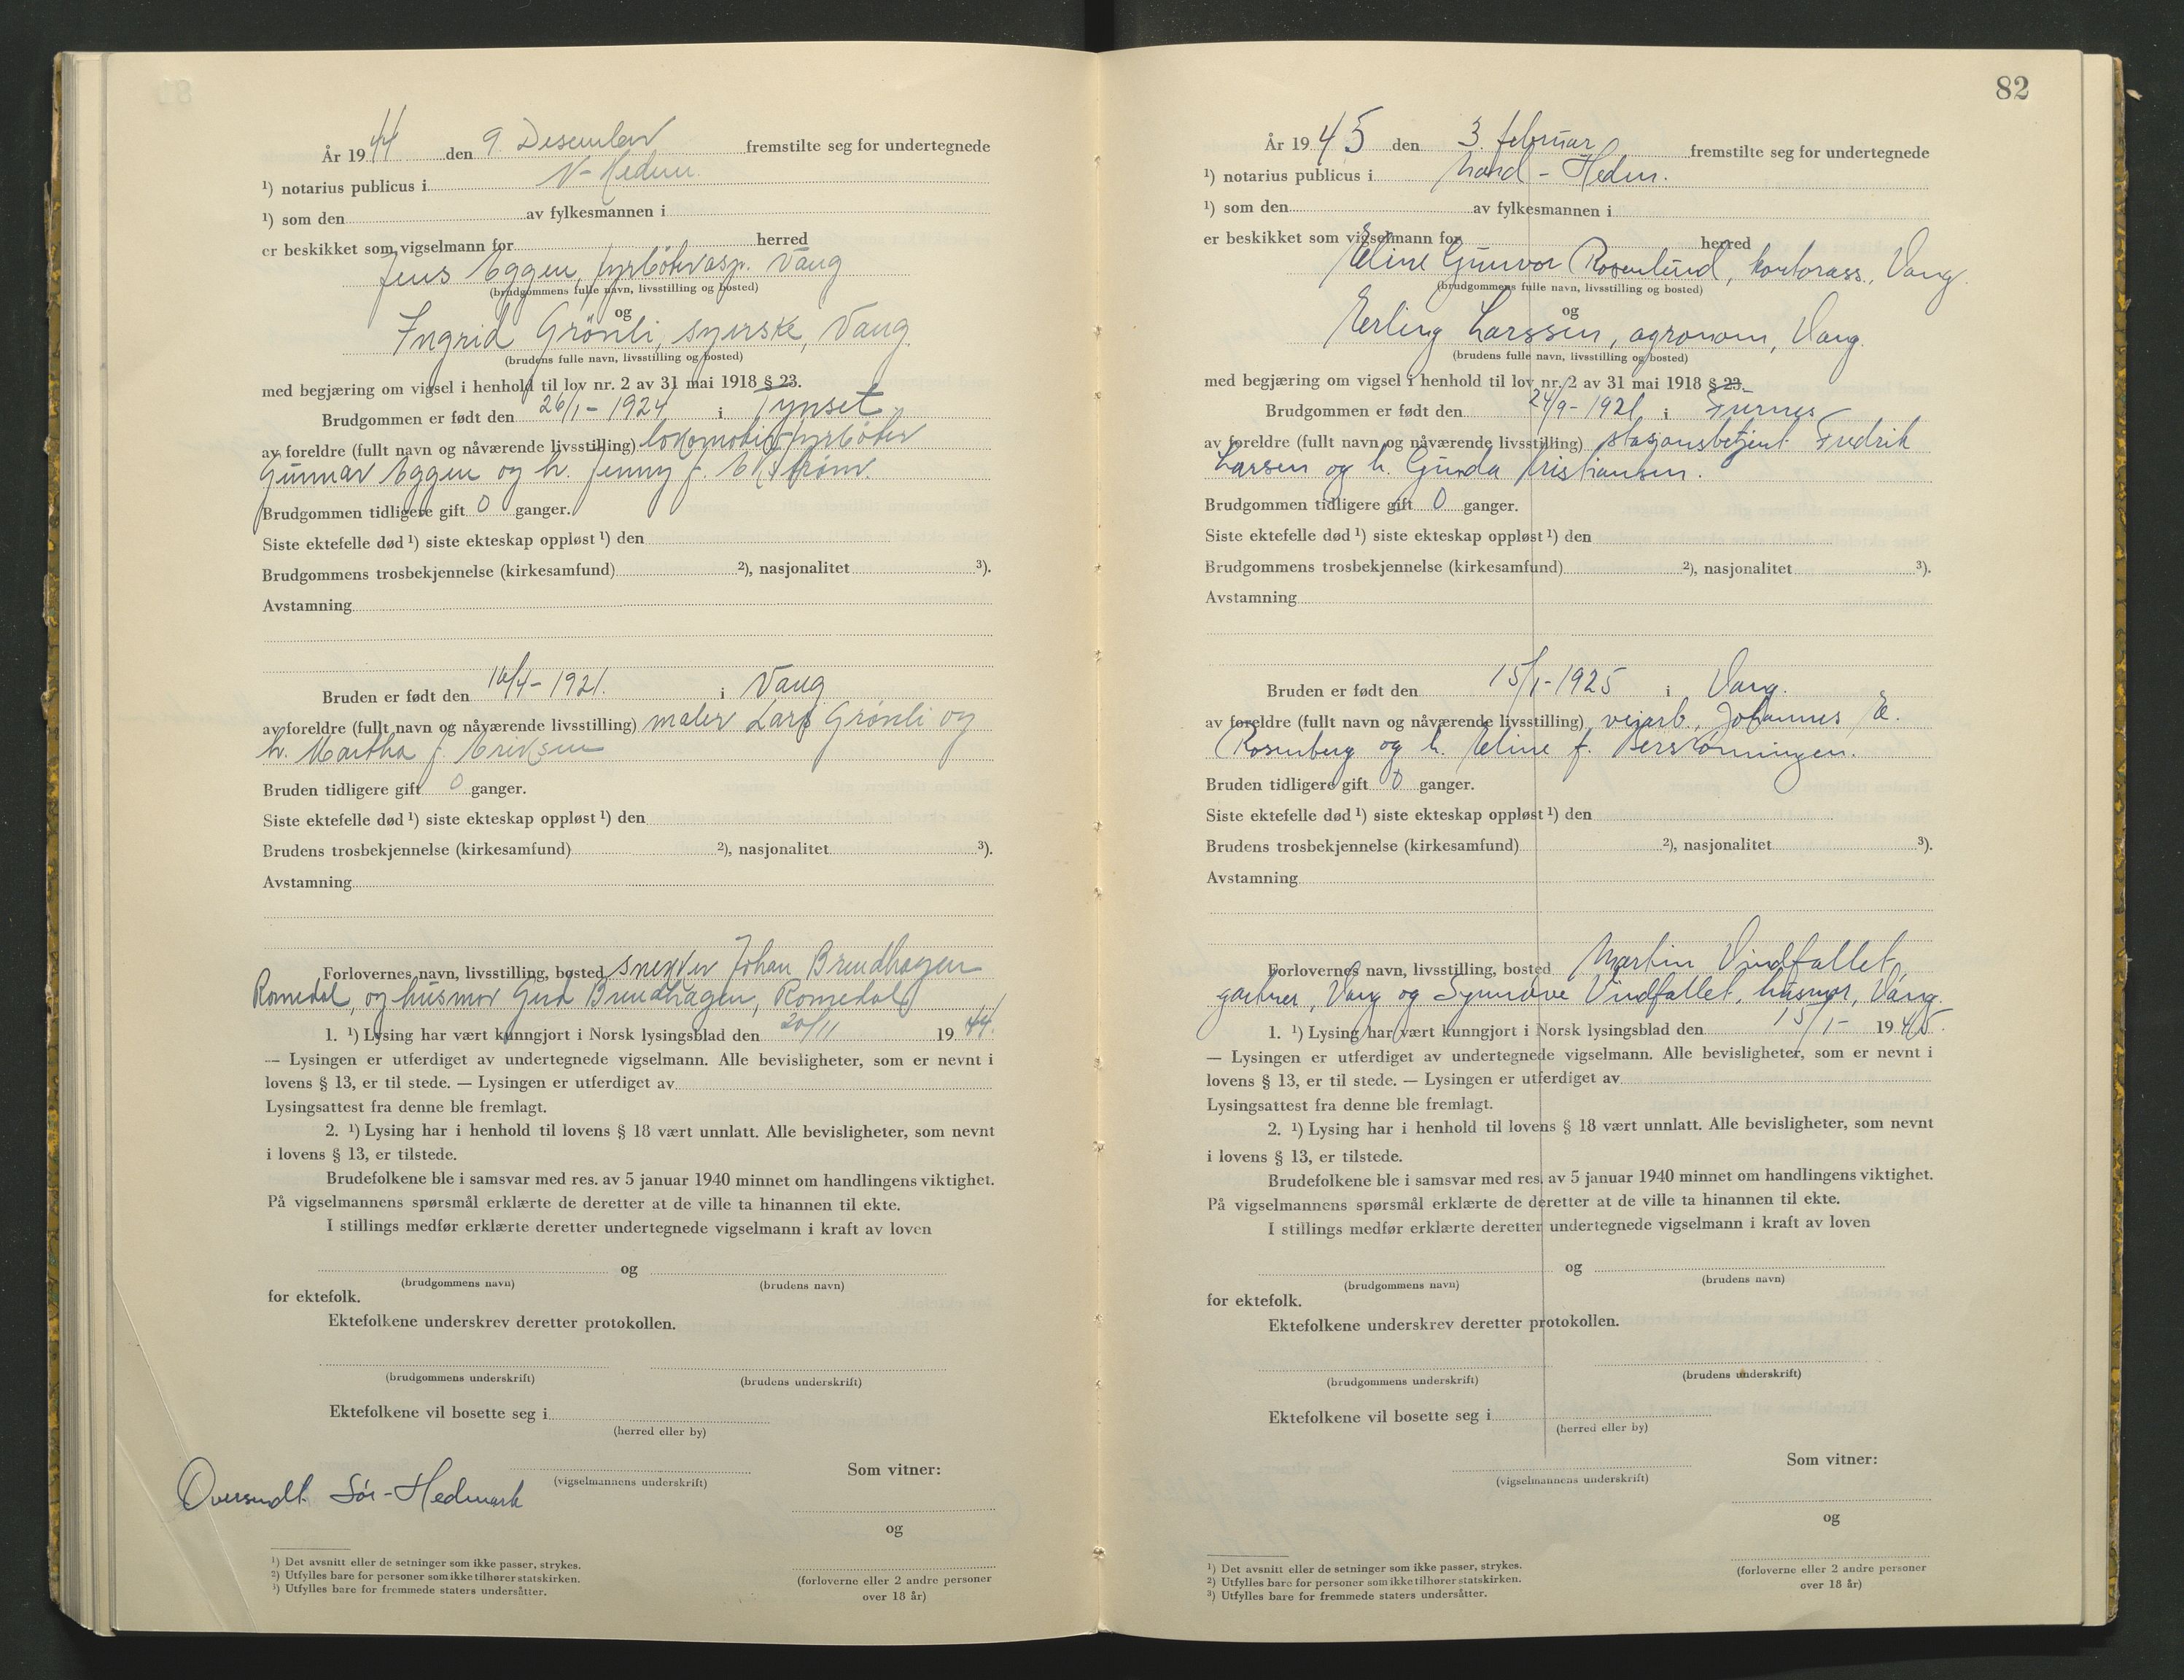 År 1944 den 9 Desember fremstilte seg for undertegnede
¹) notarius publicus i N-Hedm.
¹) som den av fylkesmannen i
er beskikket som vigselmann for herred
Jens Eggen, fyrbøterasp. Vang
(brudgommens fulle navn, livsstilling og bosted)
og
Ingrid Grönli, syerske, Vang.
(brudens fulle navn, livsstilling og bosted)
med begjæring om vigsel i henhold til lov nr. 2 av 31 mai 1918 § 23.
Brudgommen er født den 26/1 - 1924 i Tynset
av foreldre (fullt navn og nåværende livsstilling) lokomotivfyrbøter
Gunnar Eggen og h. Jenny f. Ekstrøm.
Brudgommen tidligere gift 0 ganger.
Siste ektefelle død ¹) siste ekteskap oppløst ¹) den
Brudgommens trosbekjennelse (kirkesamfund) ²), nasjonalitet ³).
Avstamning
Bruden er født den 16/4 - 1921. i Vang
av foreldre (fullt navn og nåværende livsstilling) maler Lars Grönli og
h. Martha f. Eriksen
Bruden tidligere gift 0 ganger.
Siste ektefelle død ¹) siste ekteskap oppløst ¹) den
Brudens trosbekjennelse (kirkesamfund) ²), nasjonalitet ³).
Avstamning
Forlovernes navn, livsstilling, bosted snekker Johan Brendhagen
Romedal, og husmor Gerd Brendhagen, Romedal
1. ¹) Lysing har vært kunngjort i Norsk lysingsblad den 20/11 1944.
— Lysingen er utferdiget av undertegnede vigselmann. Alle bevisligheter, som er nevnt i
lovens § 13, er til stede. — Lysingen er utferdiget av
Lysingsattest fra denne ble fremlagt.
2. ¹) Lysing har i henhold til lovens § 18 vært unnlatt. Alle bevisligheter, som nevnt
i lovens § 13, er tilstede.
Brudefolkene ble i samsvar med res. av 5 januar 1940 minnet om handlingens viktighet.
På vigselmannens spørsmål erklærte de deretter at de ville ta hinannen til ekte.
I stillings medfør erklærte deretter undertegnede vigselmann i kraft av loven
og
(brudgommens navn) (brudens navn)
for ektefolk.
Ektefolkene underskrev deretter protokollen.
(brudgommens underskrift) (brudens underskrift)
Ektefolkene vil bosette seg i
(herred eller by)
Som vitner:
(vigselmannens underskrift)
Oversendt Sør-Hedmark
og
¹) Det avsnitt eller de setninger som ikke passer, strykes.
²) Utfylles bare for personer som ikke tilhører statskirken.
³) Utfylles bare for fremmede staters undersåtter.
(forloverne eller 2 andre personer
over 18 år)
82
År 1945 den 3. februar fremstilte seg for undertegnede
¹) notarius publicus i Nord - Hedm.
¹) som den av fylkesmannen i
er beskikket som vigselmann for herred
Eline Gunvor Rosenlund, kontorass., Vang.
(brudgommens fulle navn, livsstilling og bosted)
og
Erling Larssen, agronom, Vang.
(brudens fulle navn, livsstilling og bosted)
med begjæring om vigsel i henhold til lov nr. 2 av 31 mai 1918 § 23.
Brudgommen er født den 24/9 - 1921 i Furnes
av foreldre (fullt navn og nåværende livsstilling) stasjonsbetjent Fredrik
Larsen og h. Gunda Kristiansen.
Brudgommen tidligere gift 0 ganger.
Siste ektefelle død ¹) siste ekteskap oppløst ¹) den
Brudgommens trosbekjennelse (kirkesamfund) ²), nasjonalitet ³).
Avstamning
Bruden er født den 15/1 - 1925 i Vang.
av foreldre (fullt navn og nåværende livsstilling) veiarb. Johannes E.
Rosenberg og h. Eline f.
Bruden tidligere gift 0 ganger.
Siste ektefelle død ¹) siste ekteskap oppløst ¹) den
Brudens trosbekjennelse (kirkesamfund) ²), nasjonalitet ³).
Avstamning
Forlovernes navn, livsstilling, bosted Martin Vindfallet,
gartner, Vang og Synnøve Vindfallet, husmor, Vang.
1. ¹) Lysing har vært kunngjort i Norsk lysingsblad den 15/1 - 1945.
— Lysingen er utferdiget av undertegnede vigselmann. Alle bevisligheter, som er nevnt i
lovens § 13, er til stede. — Lysingen er utferdiget av
Lysingsattest fra denne ble fremlagt.
2. ¹) Lysing har i henhold til lovens § 18 vært unnlatt. Alle bevisligheter, som nevnt
i lovens § 13, er tilstede.
Brudefolkene ble i samsvar med res. av 5 januar 1940 minnet om handlingens viktighet.
På vigselmannens spørsmål erklærte de deretter at de ville ta hinannen til ekte.
I stillings medfør erklærte deretter undertegnede vigselmann i kraft av loven
og
(brudgommens navn) (brudens navn)
for ektefolk.
Ektefolkene underskrev deretter protokollen.
(brudgommens underskrift) (brudens underskrift)
Ektefolkene vil bosette seg i
(herred eller by)
Som vitner:
(vigselmannens underskrift)
og
¹) Det avsnitt eller de setninger som ikke passer, strykes.
²) Utfylles bare for personer som ikke tilhører statskirken.
³) Utfylles bare for fremmede staters undersåtter.
(forloverne eller 2 andre personer
over 18 år)